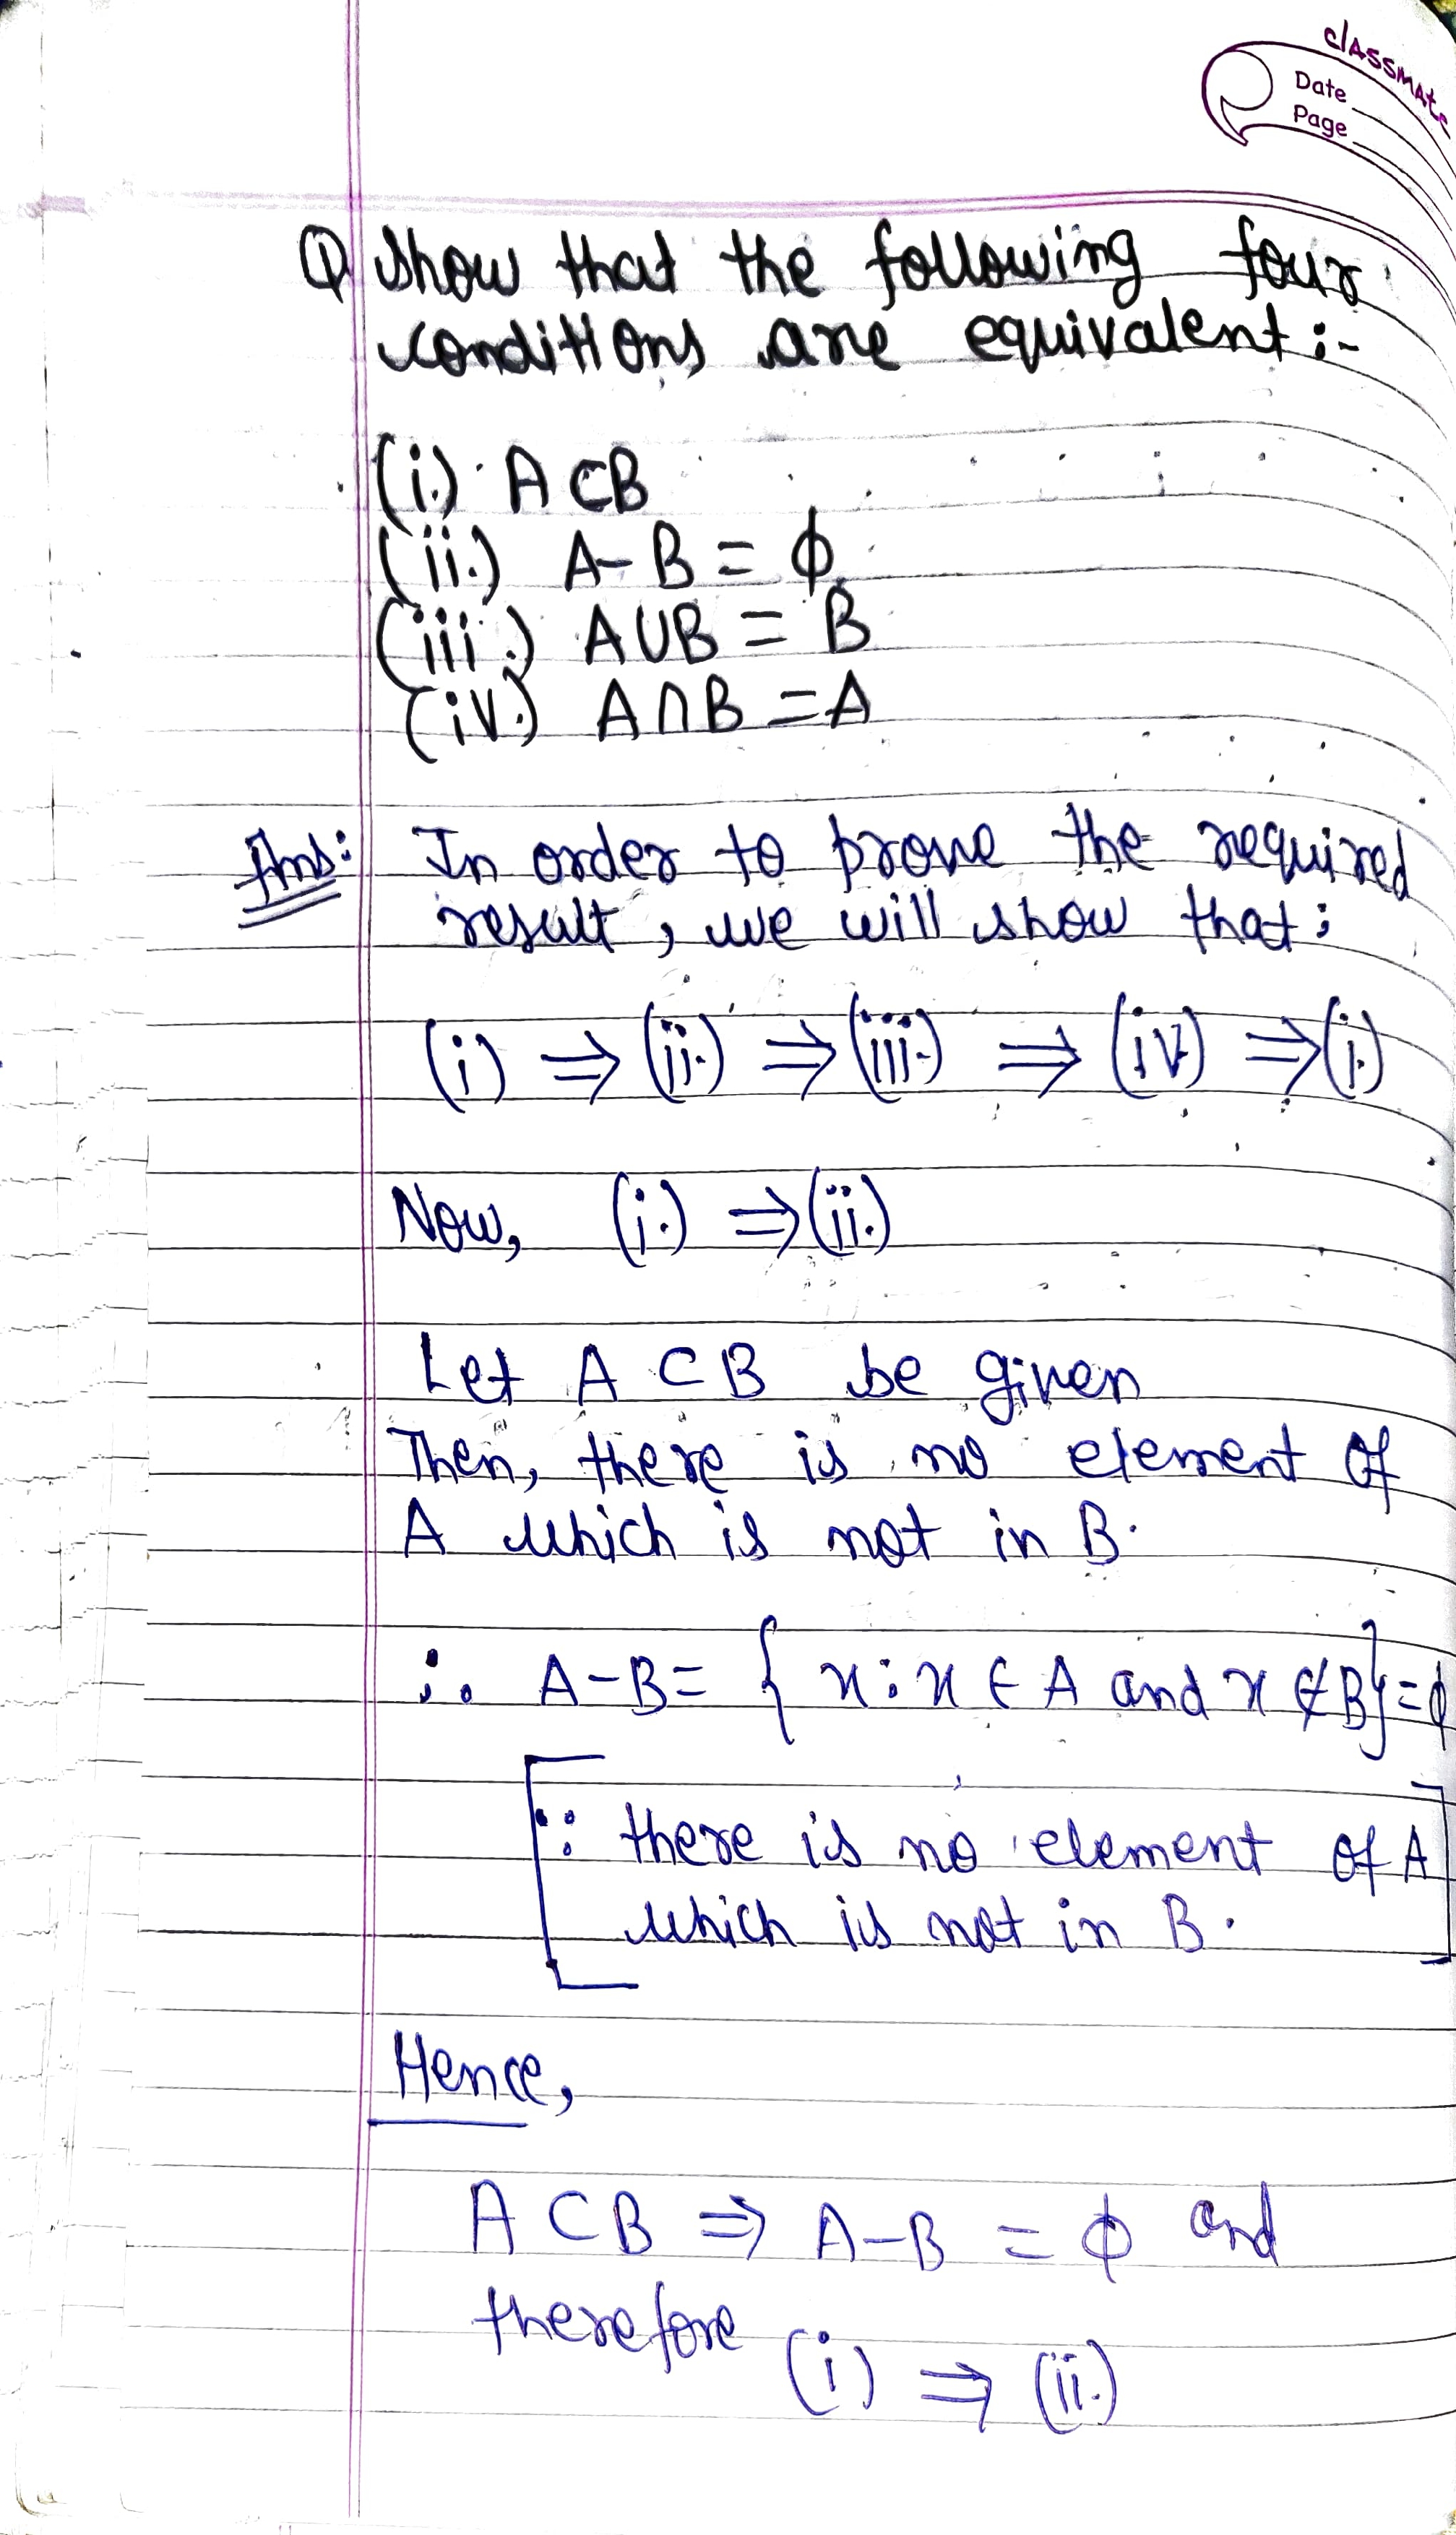 classmate
Date
Page
Q Show that the following four
conditions are equivalent :-
(i.) A ⊂ B
(ii.) A - B = ϕ
(iii.) A ∪ B = B
(iv.) A ∩ B = A
Ans: In order to prove the required
result, we will show that:
(i) ⇒ (ii.) ⇒ (iii.) ⇒ (iv) ⇒ (i)
Now, (i.) ⇒ (ii.)
Let A ⊂ B be given
Then, there is no element of
A which is not in B.
∴ A - B = { x : x ∈ A and x ∉ B } = ϕ
[∵ there is no element of A
which is not in B.]
Hence,
A ⊂ B ⇒ A - B = ϕ and
therefore (i) ⇒ (ii.)